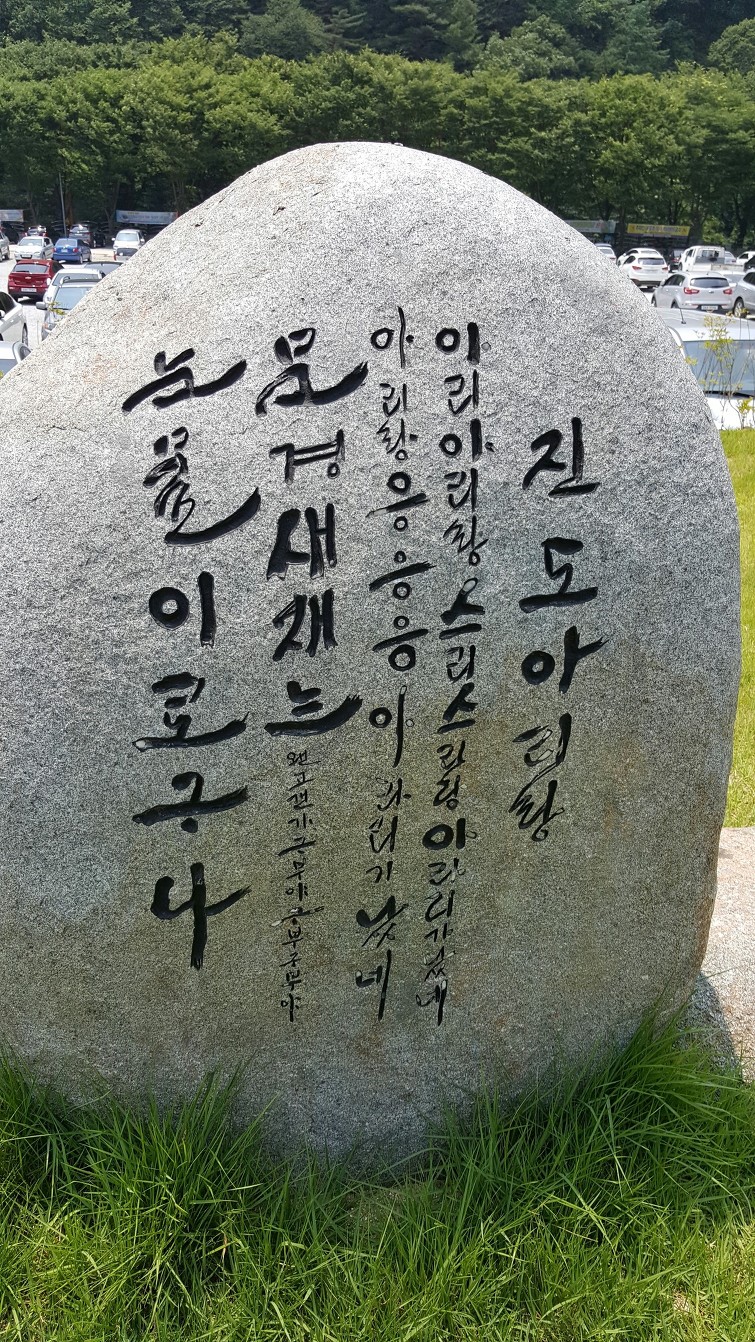 진도아리랑
아리아리랑 스리스리랑 아라리가 났네
아리랑 응응응 아라리가 났네
문경새재는 웬고갠가 구부야 구부구부야
눈물이로구나